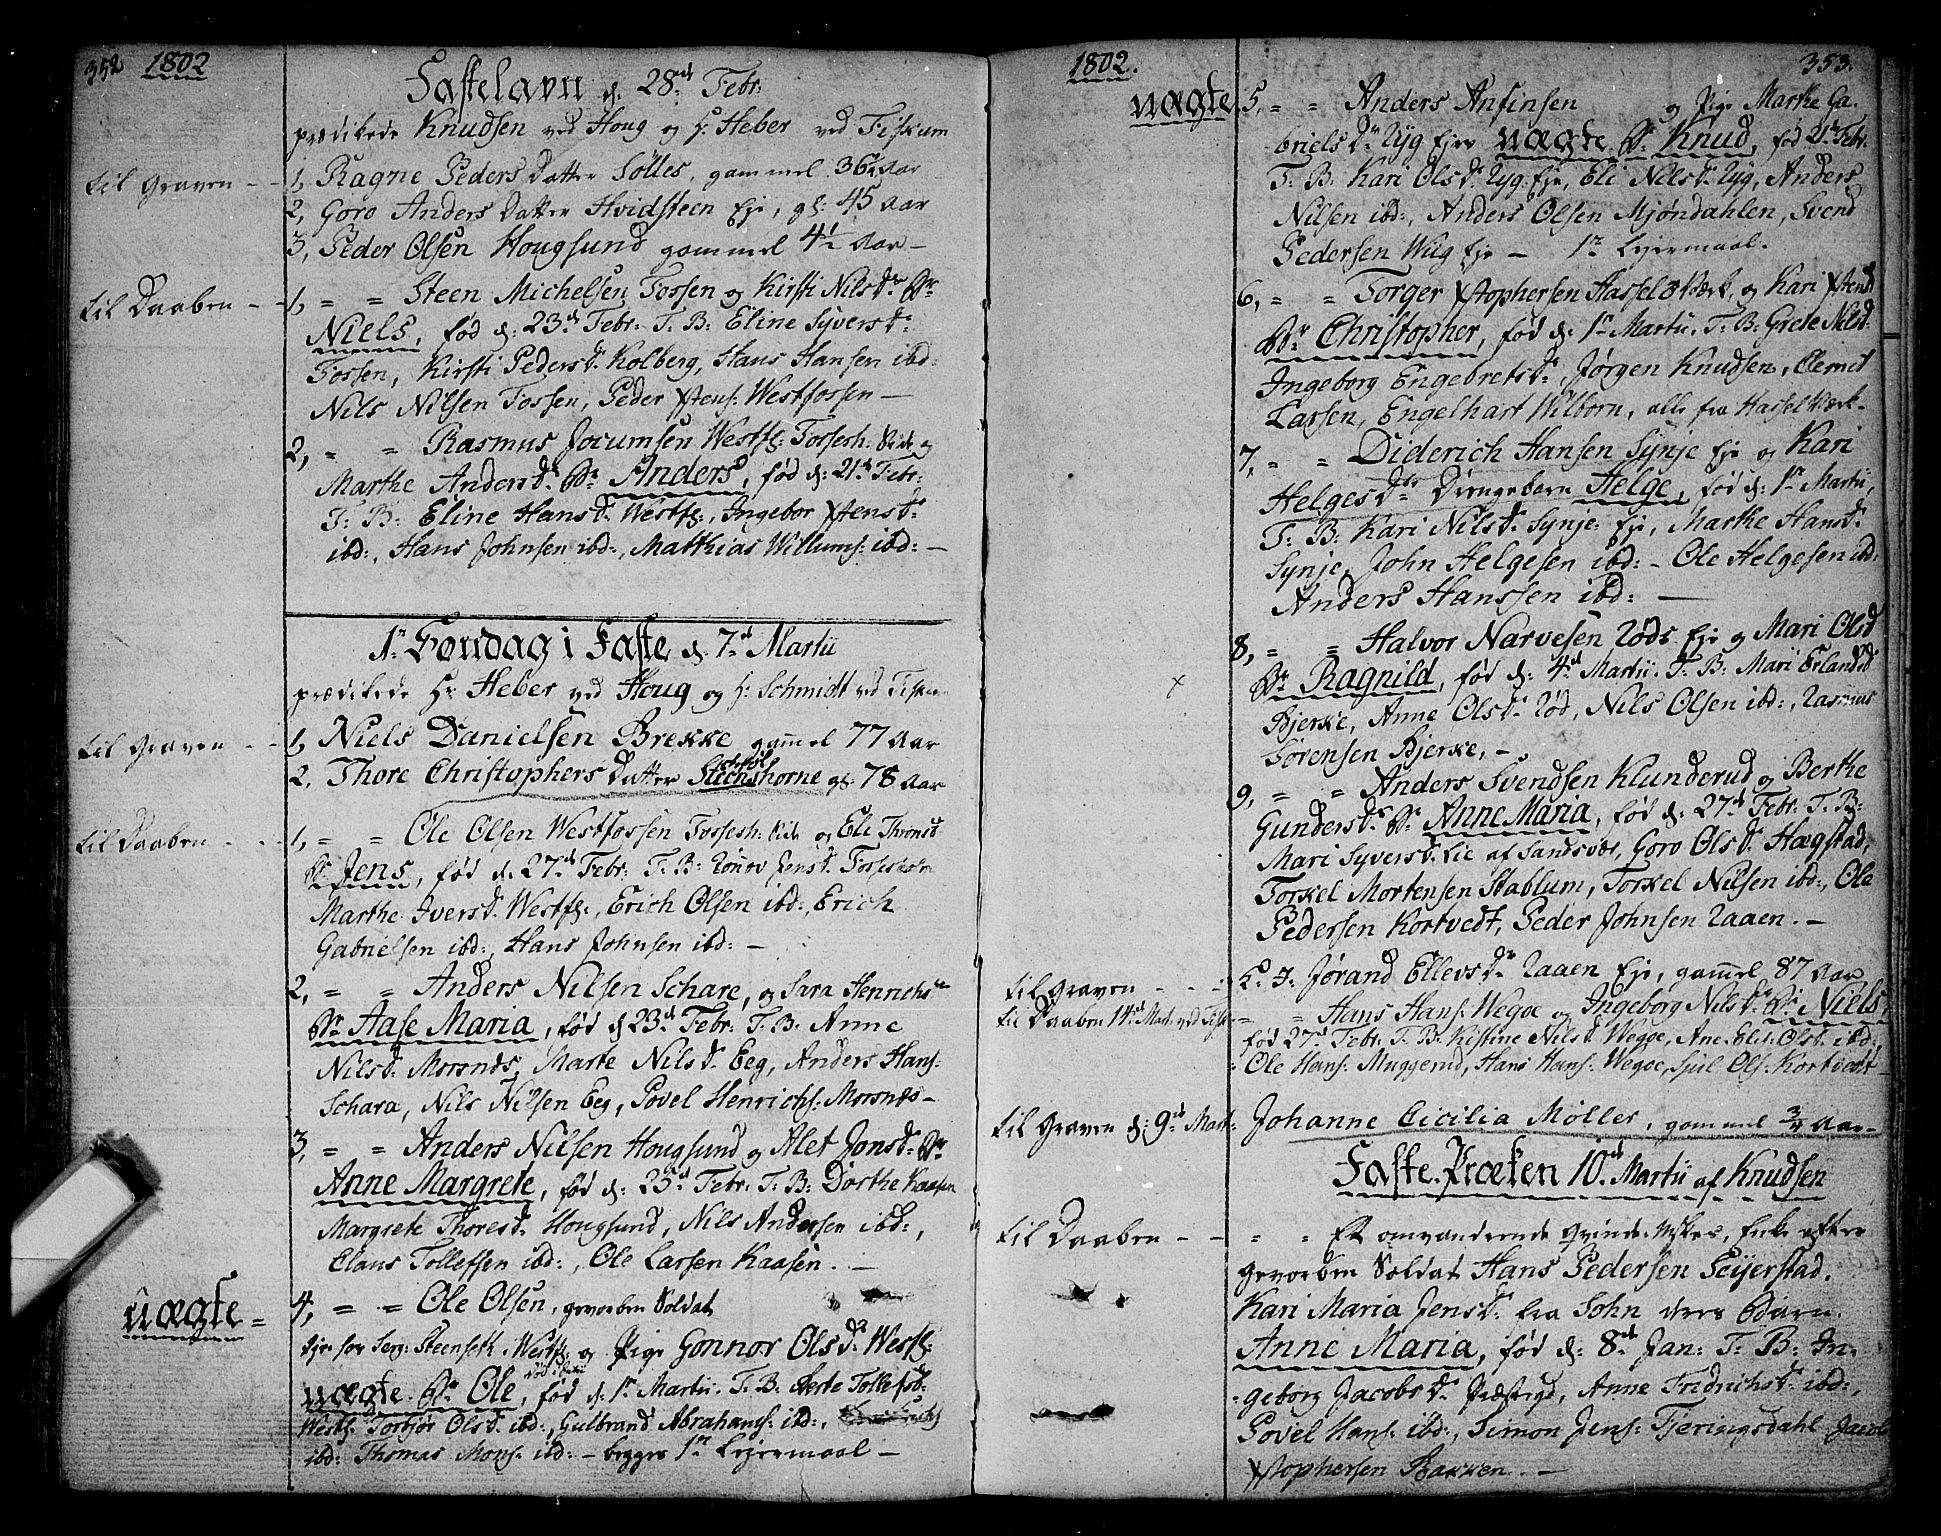 352 1802
Fastelavn d. 28de Febr.
prædikede Knudsen ved Houg og Hr. Heber ved Fiskum
til Graven - - 1, Ragne Peders Datter Sølles, gammel 36½ Aar
2, Goro Anders Datter Hvidsteen Eje, gl: 45 Aar
3, Peder Olsen Hougsund gammel 4½ Aar -
til Daaben - - 1, " " Steen Michelsen Fossen og Kirsti Nilsdr Br
Niels, fød d: 23de Febr: F. B: Eline Syversd:
Fossen, Kirsti Pedersd. Kolberg, Hans Hansen ibd:
Nils Nilsen Fossen, Peder Xstens: Westfossen -
2, " " Rasmus Jorumsen Westf: Fossesh: Eide og
Marthe Andersd. Br Anders, fød d: 21de Febr:
F. B: Eline Hansd. Westf:, Ingebor Xstensd.
ibd:, Hans Johnsen ibd:, Matthias Willums: ibd: -
1n Søndag i Faste d. 7de Martii
prædikede Hr Heber ved Houg og H: Schmidt ved Fiskum
til Graven - - 1, Niels Danielsen Brekke gammel 77 Aar
2. Thore Christophers Datter Steenshorne gl: 78 Aar
til Daaben - - - 1, " " Ole Olsen Westfossen Fossesh: Eide og Eli Thronsd
Br Jens, fød d. 27de Febr: F. B: Rønov Jensd. Fossesholm
Marthe Iversd. Westf:, Erich Olsen ibd:, Erich
Gabrielsen ibd:, Hans Johnsen ibd: -
2, " " Anders Nilsen Schare, og Sara Henrichsdr
Br Aase Maria, fød d. 23de Febr: F. B: Anne
Nilsd. Morsnds, Marte Nilsd. Eeg, Anders Hans:
Schara, Nils Nilsen Eeg, Povel Henrichs: Morsnds -
3, " " Anders Nilsen Hougsund og Alet Jonsd: Br
Anne Margrete, fød d: 25de Febr: F. B: Dorthe Kaasen
Margrete Thoresd. Hougsund, Nils Andersen ibd:,
Claus Tollefsen ibd:, Ole Larsen Kaasen. -
uægte = 4, " " Ole Olsen, gevorben Soldat
for Serg: Steenseth. Westf: og Pige Gonnor Olsdr Westf:
uægte Br Ole, fød d. 1n Martii. F. B: Berte Tollefsd:
Westf: Torbjør Olsd. ibd:, Gulbrand Abrahams: ibd:,
ibd: Thomas Mons: ibd: - begges 1ste Lejermaal -
1802. 353.
uægte 5, " " Anders Ansinsen og Pige Marthe Ga-
brielsdr Ryg Ejer uægte Br Knud, fød 21de Febr.
F. B: Kari Olsd. Ryg Eje, Eli Nilsd. Ryg, Anders
Nilsen ibd:, Anders Olsen Mjøndahlen, Svend
Pedersen Wiig Eje - 1te Lejermaal.
6, " " Torger Xstophersen Hassel Værk, og Kari Xstensd
Br Christopher, fød d. 1n Martii. F. B: Grete Nilsd:
Ingeborg Engebretsd., Jørgen Knudsen, Clemet
Larsen, Engelhart Wilborn, alle fra Hassel Værk -
7, " " Diderich Hansen Synje Eje og Kari
Helgesdr Drengebarn Helge, fød d: 1n Martii,
F. B: Kari Nilsd. Synje Eje, Marthe Hansd.
Synje, John Helgesen ibd: - Ole Helgesen ibd:
Anders Hanssen ibd: -
8, " " Halvor Narvesen Røds Eje og Mari Olsd
x Br Ragnild, fød d: 4de Martii. F. B: Mari Erlandsd
Bjerke, Anne Olsd. Rød, Nils Olsen ibd:, Rasmus
Sørensen Bjerke, -
9, " " Anders Svendsen Klunderud og Berthe
Gundersd. Br Anne Maria, fød d: 27de Febr: F. B:
Mari Syversd. Lie af Sandsvær, Goro Olsd. Hægstad,
Torkel Mortensen Stablum, Torkel Nilsen ibd:, Ole
Pedersen Kortvedt, Peder Johnsen Raaen. -
til Graven - - - Jørand Ellevsdr Raaen Eje, gammel 87 Aar
til Daaben 14de Mart. ved Fisk: " " Hans Hans: Wegoe og Ingeborg Nilsd. Br Niels,
fød 27de Febr. F. B: Kistine Nilsd. Wegoe, Ane Elis: Olsd. ibd:,
Ole Hans: Muggerud, Hans Hans: Wegoe, Sjul Ols: Kortvedt
til Graven d: 9de Mart: Johanne Cicilia Møller, gammel ¾ Aar -
Faste-Præken 10de Martii af Knudsen
til Daaben - - " " Et omvandrende Qvinde-Mske, Enke efter
gevorben Soldat Hans Pedersen Seijerstad.
Kari Maria Jensd. fra Sohn deres Barn.
Anne Maria, fød d: 8de Jan: F. B: In-
geborg Jacobsdr Præstegd, Anne Fridrichsd. ibd:,
Povel Hans: ibd:, Simon Jens: Tjeringsdahl Jacob
Xstophersen Bakken. -